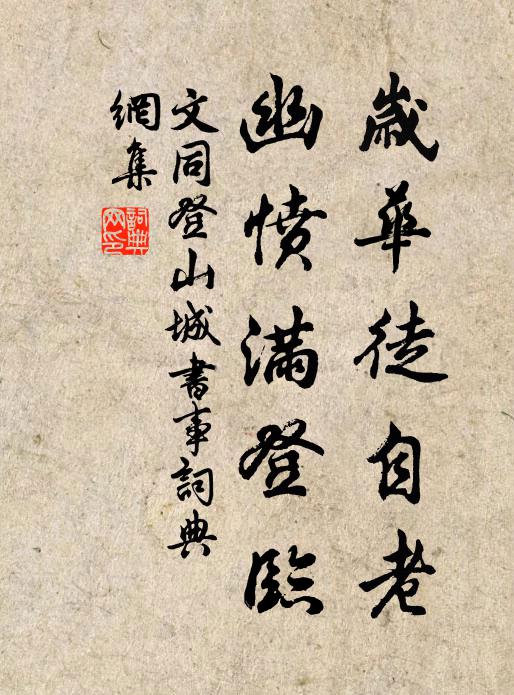 歲華徒自老
幽憤滿登臨
文同登山城書事詞典
網集
詞典
网印